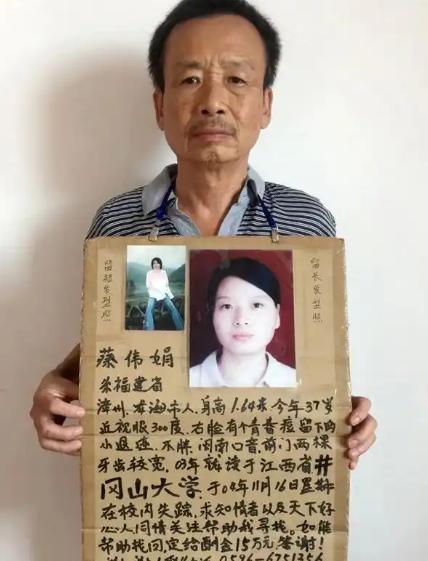 留短发型照
留长发型照
蔡伟娟
系福建省
漳州.龙海市人.身高1.64米今年37岁
近视眼300度.右脸有个青春痘留下的
小退迹.不胖.闽南口音.前门两棵
牙齿较宽.03年就读于江西省井
冈山大学.于04年11月16日
在校内失踪.求知情者以及天下好
心人同情关注帮助我寻找.如能
帮助找回定给酬金15万元.答谢!
0596-6751356